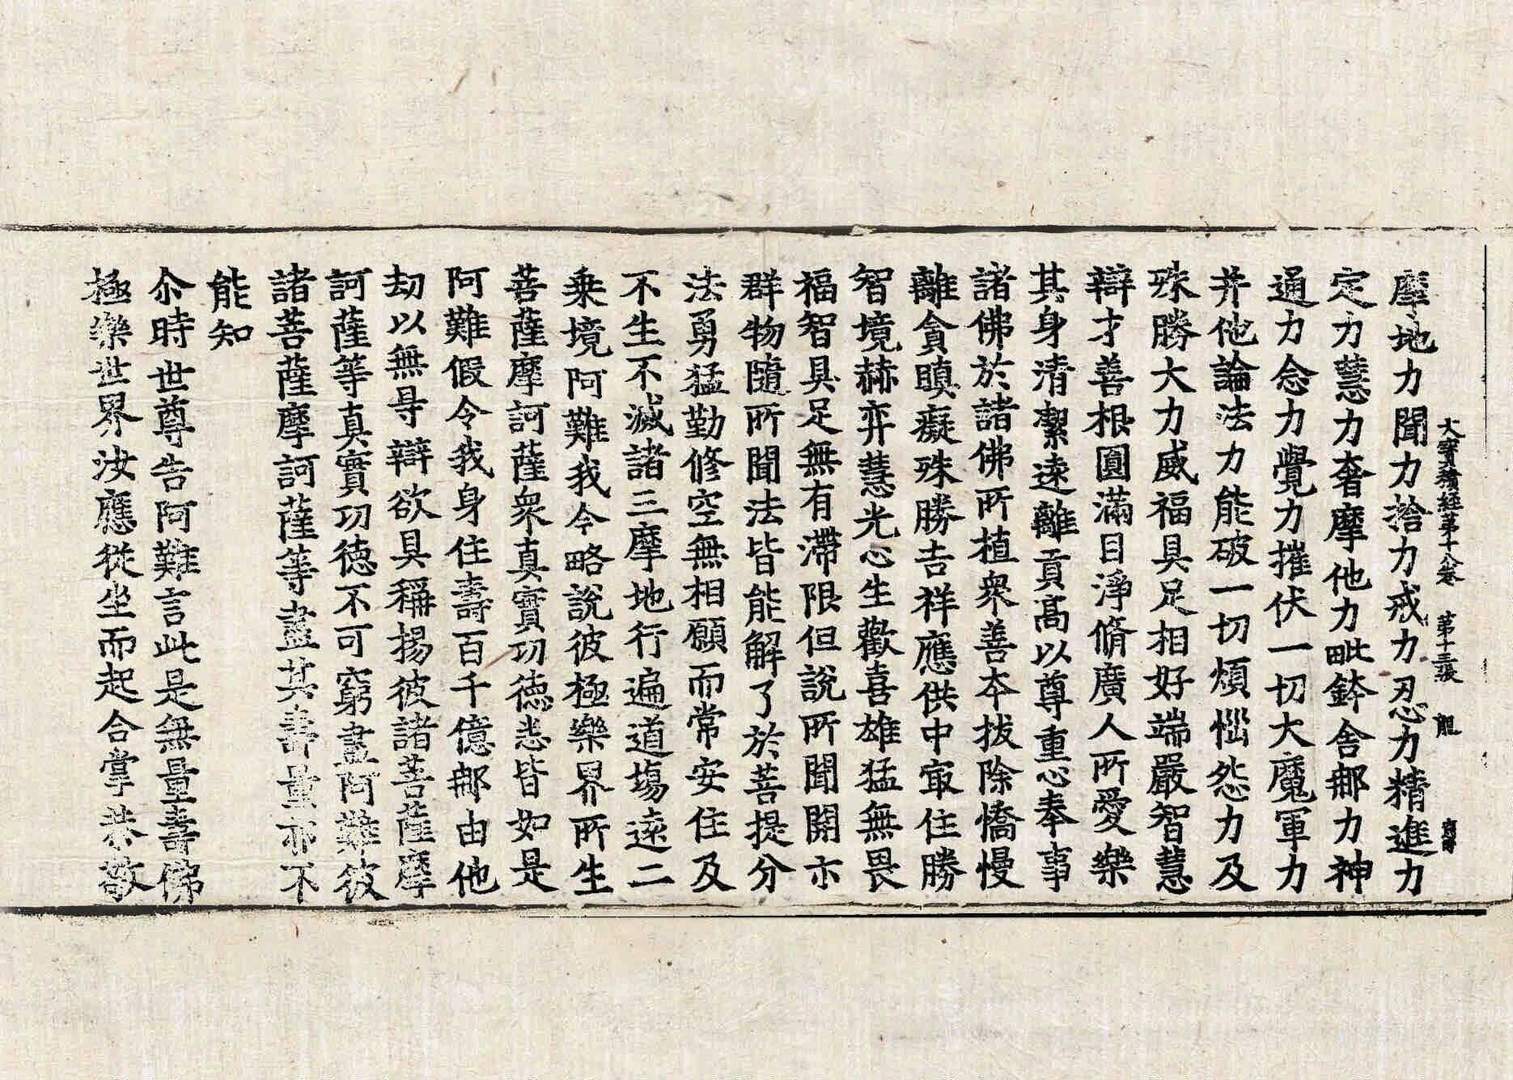 大寶積經第十八卷 第十三張 龍
摩地力聞力捨力戒力忍力精進力
定力慧力奢摩他力毗鉢舍郍力神
通力念力覺力摧伏一切大魔軍力
并他論法力能破一切煩惱怨力及
殊勝大力威福具足相好端嚴智慧
辯才善根圓滿目淨脩廣人所愛樂
其身清潔遠離貢高以尊重心奉事
諸佛於諸佛所植衆善本拔除憍慢
離貪瞋癡殊勝吉祥應供中㝡住勝
智境赫弈慧光心生歡喜雄猛無畏
福智具足無有滯限但說所聞開示
群物隨所聞法皆能解了於菩提分
法勇猛勤修空無相願而常安住及
不生不滅諸三摩地行遍道場遠二
乗境阿難我今略說彼極樂界所生
菩薩摩訶薩衆真實功德悉皆如是
阿難假令我身住壽百千億郍由他
劫以無㝵辯欲具稱揚彼諸菩薩摩
訶薩等真實功德不可窮盡阿難彼
諸菩薩摩訶薩等盡其壽量亦不
能知
尒時世尊告阿難言此是無量壽佛
極樂世界汝應從坐而起合掌恭敬